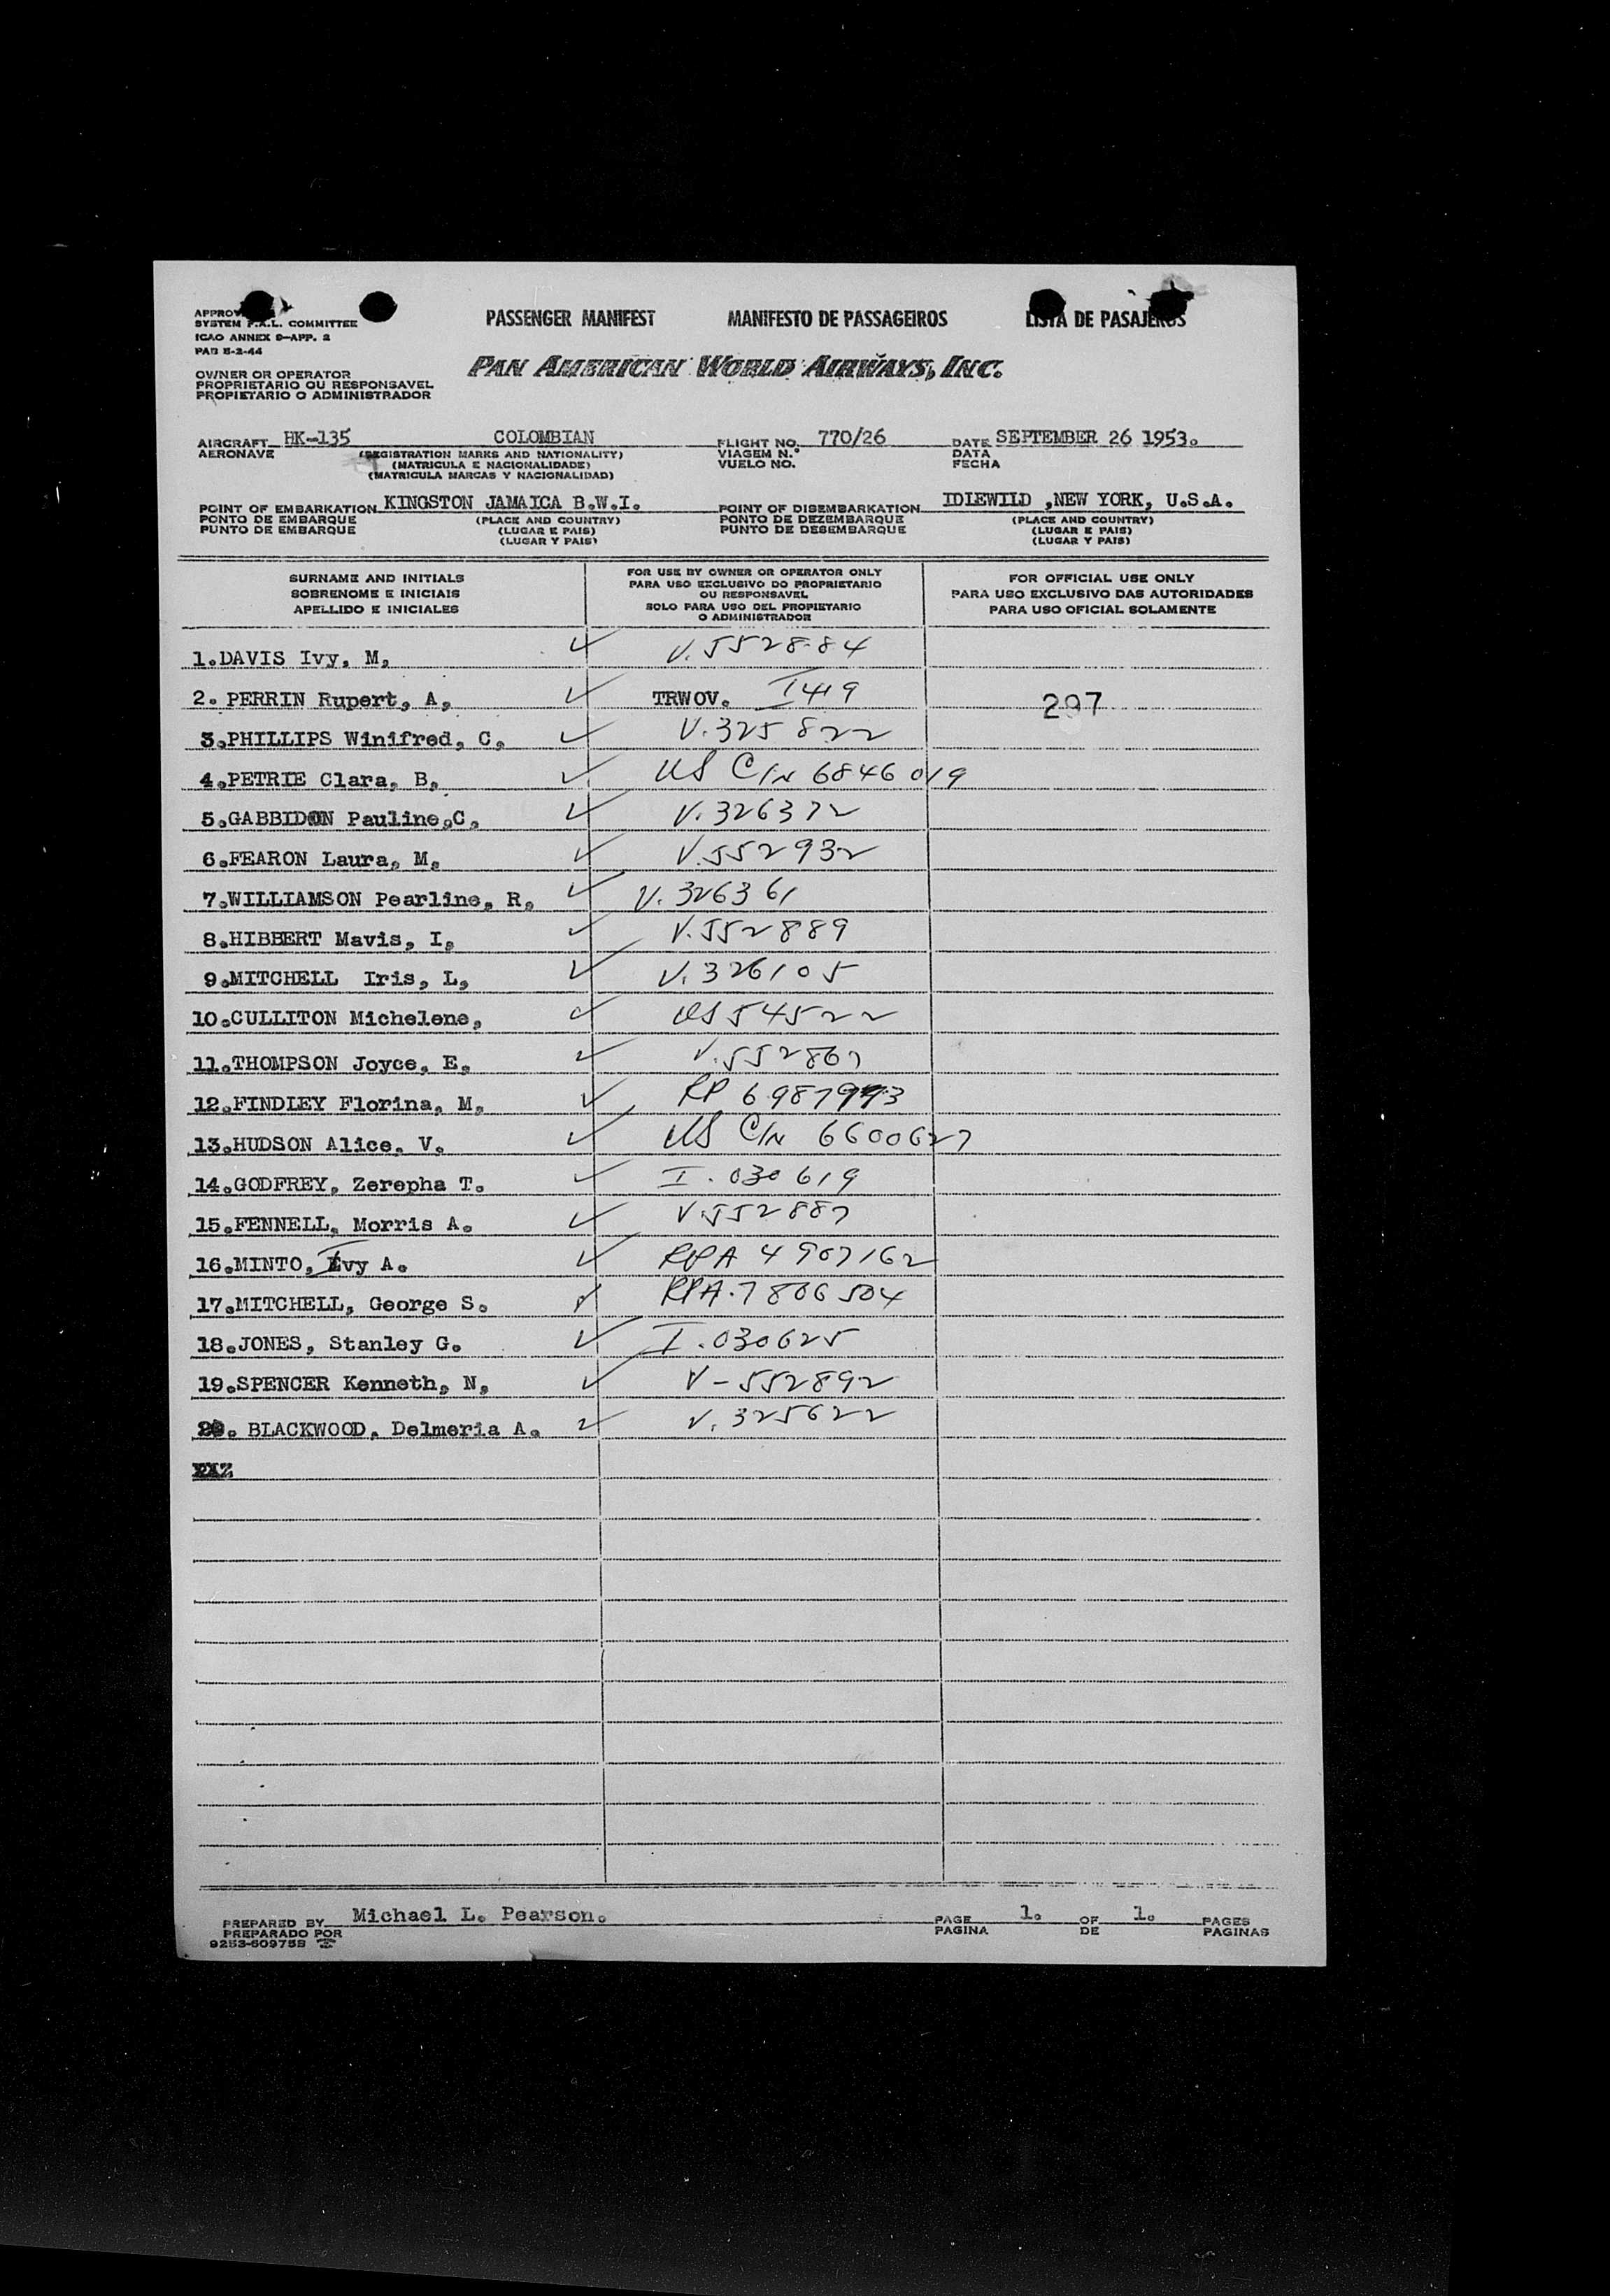 APPROV
SYSTEM F.A.L. COMMITTEE
ICAO ANNEX 9—APP. 2
PAB 5-2-44
PASSENGER MANIFEST MANIFESTO DE PASSAGEIROS LISTA DE PASAJEROS
PAN AMERICAN WORLD AIRWAYS, INC.
OWNER OR OPERATOR
PROPRIETARIO OU RESPONSAVEL
PROPIETARIO O ADMINISTRADOR
AIRCRAFT HK-135 COLOMBIAN FLIGHT NO. 770/26 DATE SEPTEMBER 26 1953.
AERONAVE (REGISTRATION MARKS AND NATIONALITY) VIAGEM N.° DATA
(MATRICULA E NACIONALIDADE) VUELO NO. FECHA
(MATRICULA MARCAS Y NACIONALIDAD)
POINT OF EMBARKATION KINGSTON JAMAICA B.W.I. POINT OF DISEMBARKATION IDLEWILD ,NEW YORK, U.S.A.
PONTO DE EMBARQUE (PLACE AND COUNTRY) PONTO DE DEZEMBARQUE (PLACE AND COUNTRY)
PUNTO DE EMBARQUE (LUGAR E PAIS) PUNTO DE DESEMBARQUE (LUGAR E PAIS)
(LUGAR Y PAIS) (LUGAR Y PAIS)
SURNAME AND INITIALS
SOBRENOME E INICIAIS
APELLIDO E INICIALES
FOR USE BY OWNER OR OPERATOR ONLY
PARA USO EXCLUSIVO DO PROPRIETARIO
OU RESPONSAVEL
SOLO PARA USO DEL PROPIETARIO
O ADMINISTRADOR
FOR OFFICIAL USE ONLY
PARA USO EXCLUSIVO DAS AUTORIDADES
PARA USO OFICIAL SOLAMENTE
1.DAVIS Ivy, M, ✓ V.552884
2. PERRIN Rupert, A, ✓ TRWOV. I419 297
3.PHILLIPS Winifred, C, ✓ V.325822
4.PETRIE Clara, B, ✓ US C/N 6846019
5.GABBIDON Pauline,C, ✓ V.326372
6.FEARON Laura, M, ✓ V.552932
7.WILLIAMSON Pearline, R, ✓ V.326361
8.HIBBERT Mavis, I, ✓ V.552889
9.MITCHELL Iris, L, ✓ V.326105
10.CULLITON Michelene, ✓ US 54522
11.THOMPSON Joyce, E, ✓ V.552867
12.FINDLEY Florina, M, ✓ RP
13.HUDSON Alice, V. ✓ US C/N 6600627
14.GODFREY, Zerepha T. ✓ I.030619
15.FENNELL, Morris A. ✓ V.552887
16.MINTO, Ivy A. ✓ RPA 4907162
17.MITCHELL, George S. ✓ RPA.7806504
18.JONES, Stanley G. ✓ I.030625
19.SPENCER Kenneth, N, ✓ V-552892
20. BLACKWOOD, Delmeria A. ✓ V.325622
PREPARED BY Michael L. Pearson. PAGE 1. OF 1. PAGES
PREPARADO POR PAGINA DE PAGINAS
9253-609758